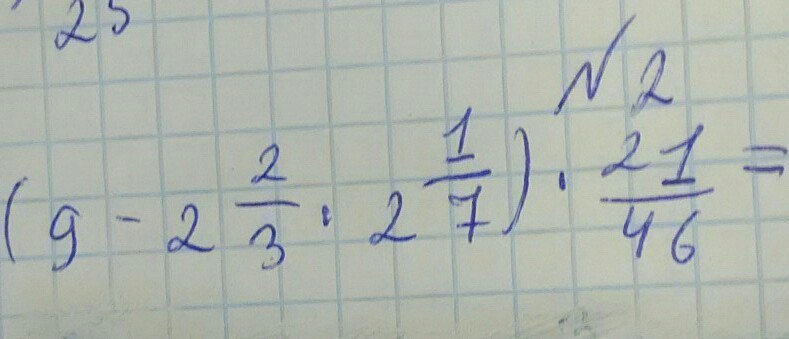 25
№2
(9 - 2 2/3 · 2 1/7) · 21/46 =